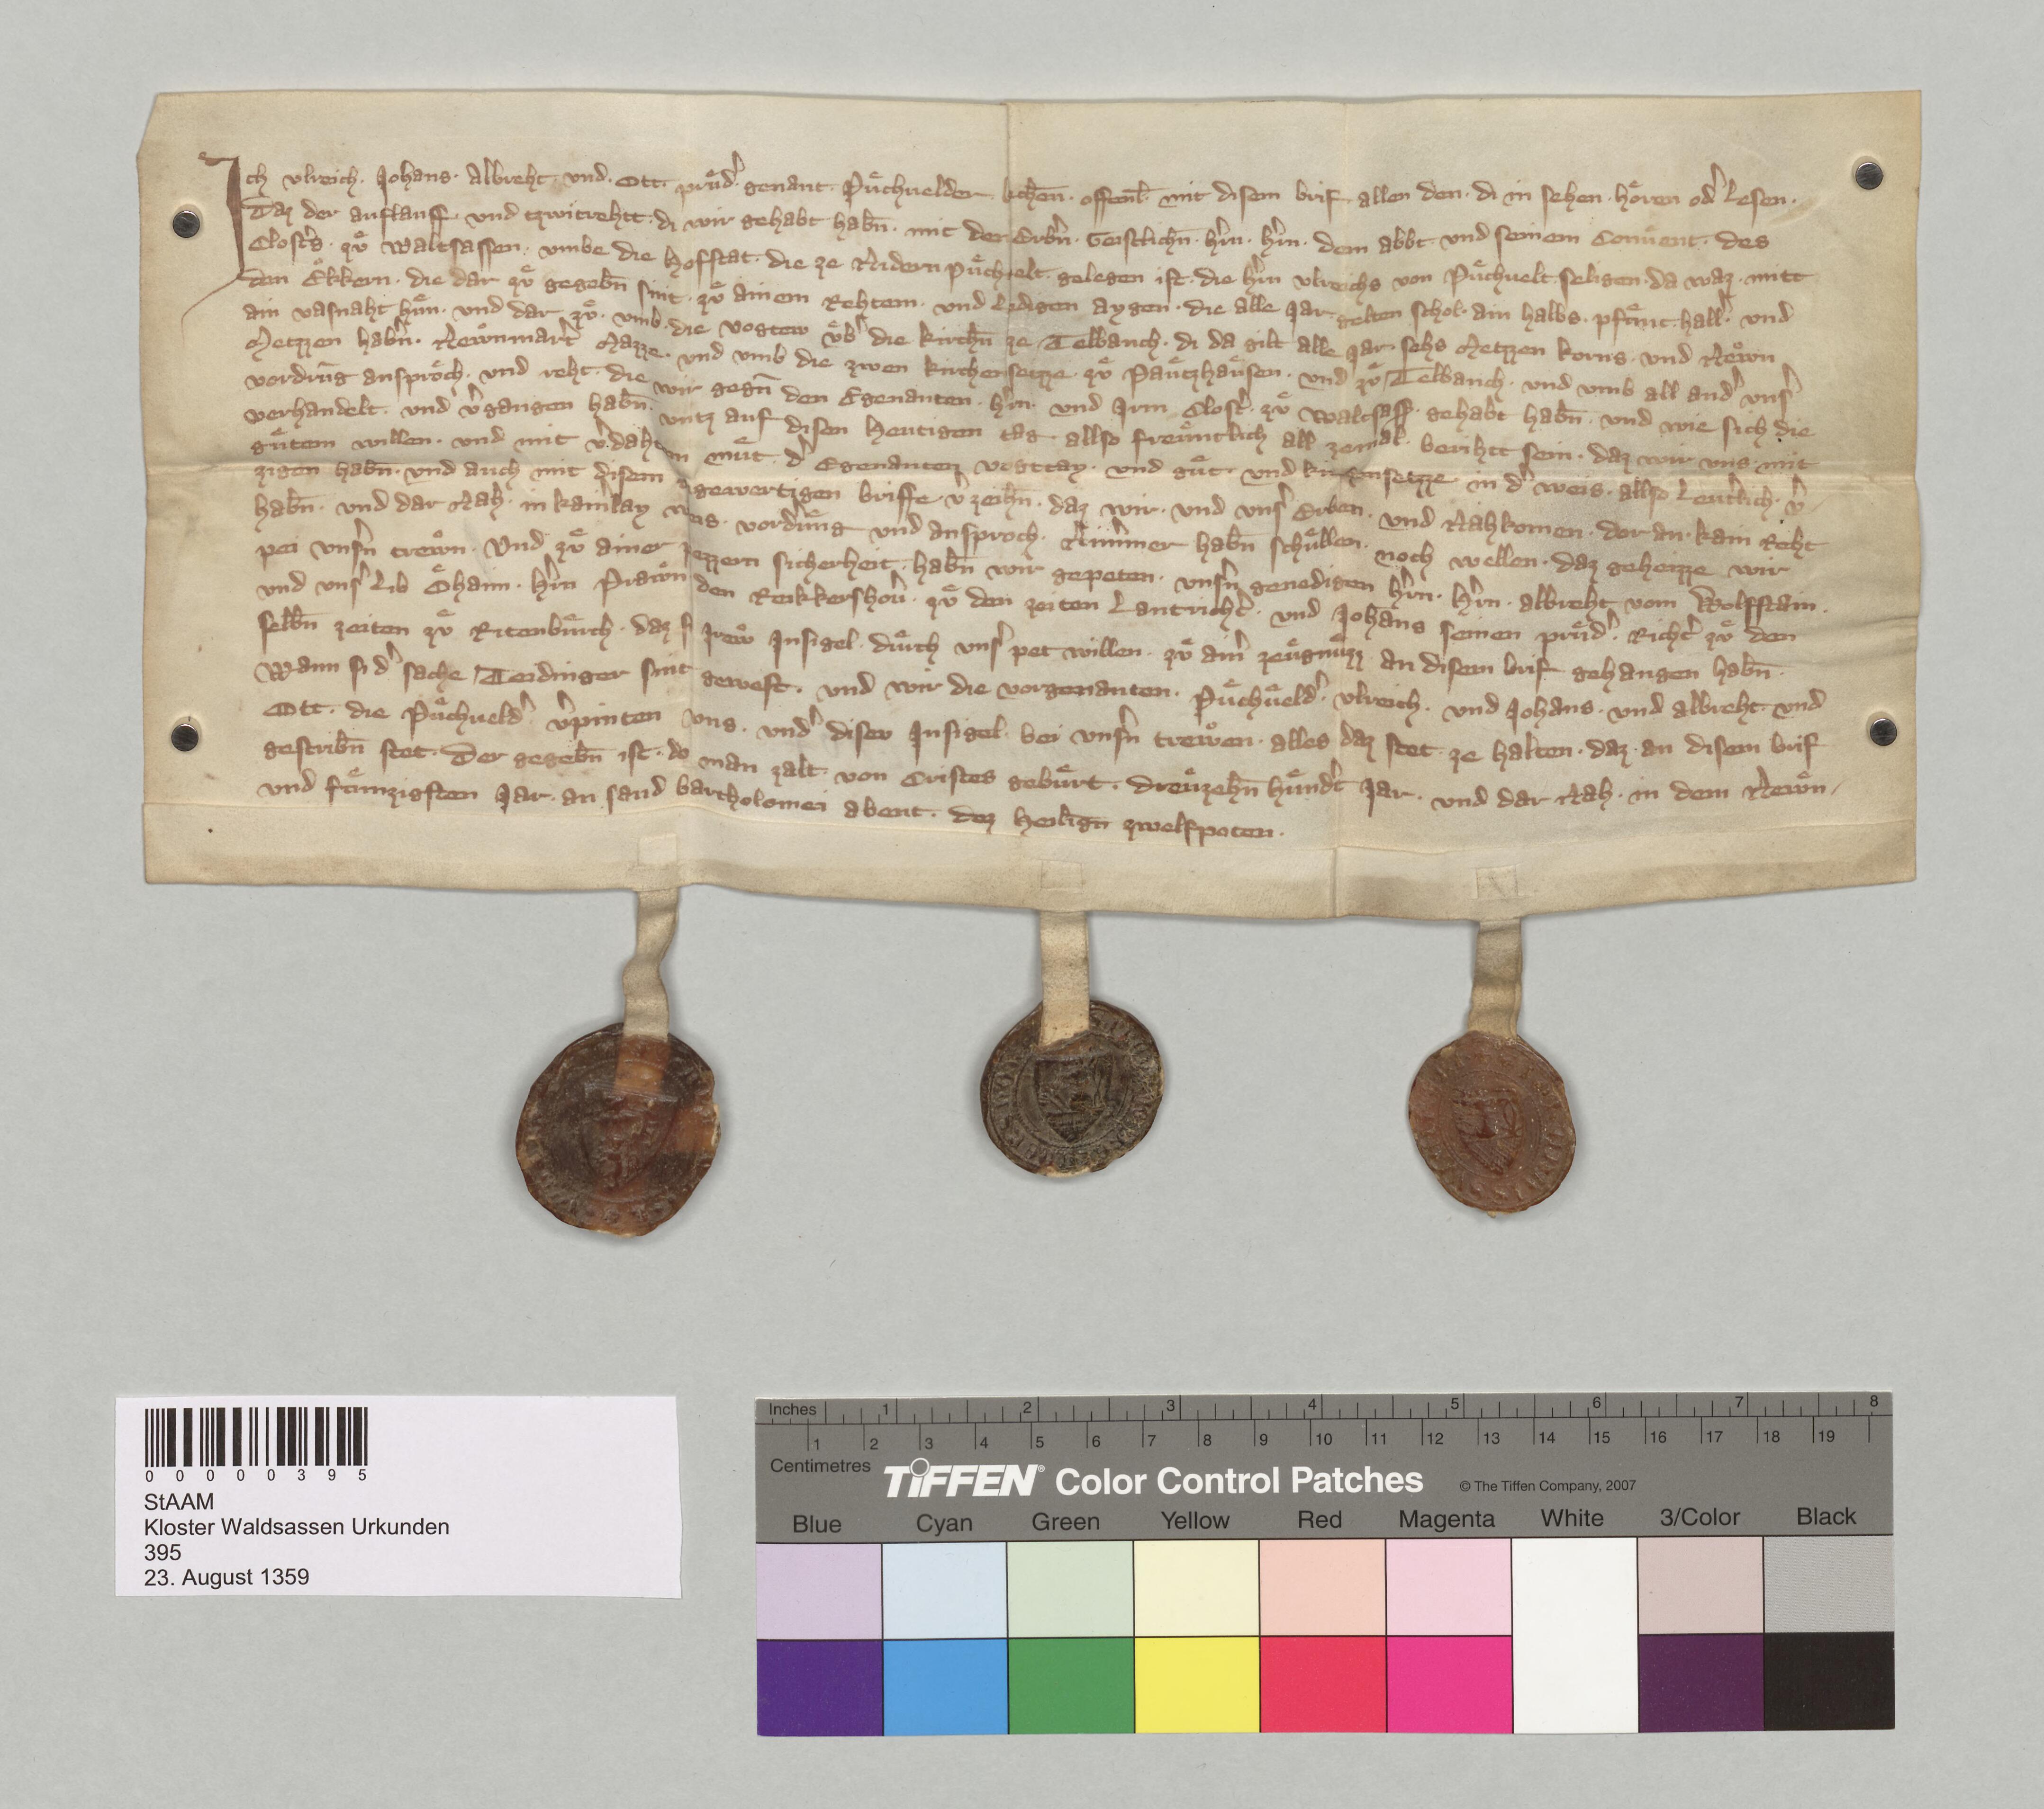 Ich vlreich · Johans · Albreht · vnd · Ott · prüder · genant · Püchuelder · offenl · mit disem brif · allen den · di in sehen · hören oder Lesen ·
Daz der auflauff · vnd tzwitrehtt · di wir gehabt habn · mit den Erbern · Geistlichn · hern · hern · dem abbt · vnd seinem Conuent · des
Closters · zü Waltsassen · vmbe die hofstat · die ze Nidern Püchfelt · gelegen ist · die hern vlreichs von Püchuelt · seligen · da waz · mitt
den Ekkern · die dar zü gegebn sint · zü ainem Rehtem · vnd Ledigen aygen · die alle Jar gelten schol · ain halbs · pfünt · haller · vnd
ain vasnaht hün · vnd dar zü · vmb · die vogtew vber die kirchn ze Telbanch · di da gilt alle Jar · sehs Metzzen korns · vnd Newn
Metzzen habern · Newnmarter Mazze · vnd vmb die zwen kirchensetzze · zü Pautzhausen · vnd zü Telbanch · vnd vmb all ander vnser
vordrung ansproch · vnd reht · die wir gegn den Egenanten · hern · vnd Irm Closter · zü Waltsass · gehabt habn · vnd wie sich die
verhandelt · vnd vergangen habn · vntz auf disen heutigen tag · allso freüntlich all zemal · berihtt sein · daz wir vns mit
gütem willen · vnd mit verdahtem müt · der Egenanten vogttay · vnd güt · vnd kirchensetzze in der weis · allso Leutlich · ver-
zigen habn · vnd auch mit disem gegewertigen briffe verzeihn · daz wir · vnd vnser Erben · vnd Nahkomen · dar an · kain Reht
habn · vnd dar Nah · in kainlay weis · vordrüng vnd ansproch · Nimmer habn schüllen · noch wellen · daz geheizze wir
pei vnsern trewn · Vnd zü ainer pezzern sicherheit · habn wir gepeten · vnsern genedigen hern · hern · albreht vom Wolfstain ·
vnd vnser Lib Öhaim · hern Prawn den Reikkershouer · zü den zeiten Lantrichter · vnd Johans seinen prüder · Richter zü den
selbn zeiten zü Ritenbürch · daz si Irew Insigel · dürch vnser pet willen · zü ainer zeügnüzz an disem brif gehangen habn ·
Wann si der sache Teidinger sint gewest · vnd wir die vorgenanten · Püchuelder · vlreich · vnd Johans · vnd albreht vnd
Ott · die Püchuelder · verpinten vns · vnder diser Insigel · bei vnsern trewen · alles daz stet ze halten · daz · an disem brif
gescribn stet · Der gegebn ist · do man zalt · von Cristes gebürt · dreüzehn hündert Jar · vnd dar Nah · in dem Newn-
vnd fünzigsten Jar · an sand bartholomei abent · dez heilign zwelfpoten ·
0 0 0 0 0 3 9 5
StAAM
Kloster Waldsassen Urkunden
395
23. August 1359
Inches 1 2 3 4 5 6 7 8
1 2 3 4 5 6 7 8 9 10 11 12 13 14 15 16 17 18 19
Centimetres
TIFFEN® Color Control Patches © The Tiffen Company, 2007
Blue Cyan Green Yellow Red Magenta White 3/Color Black